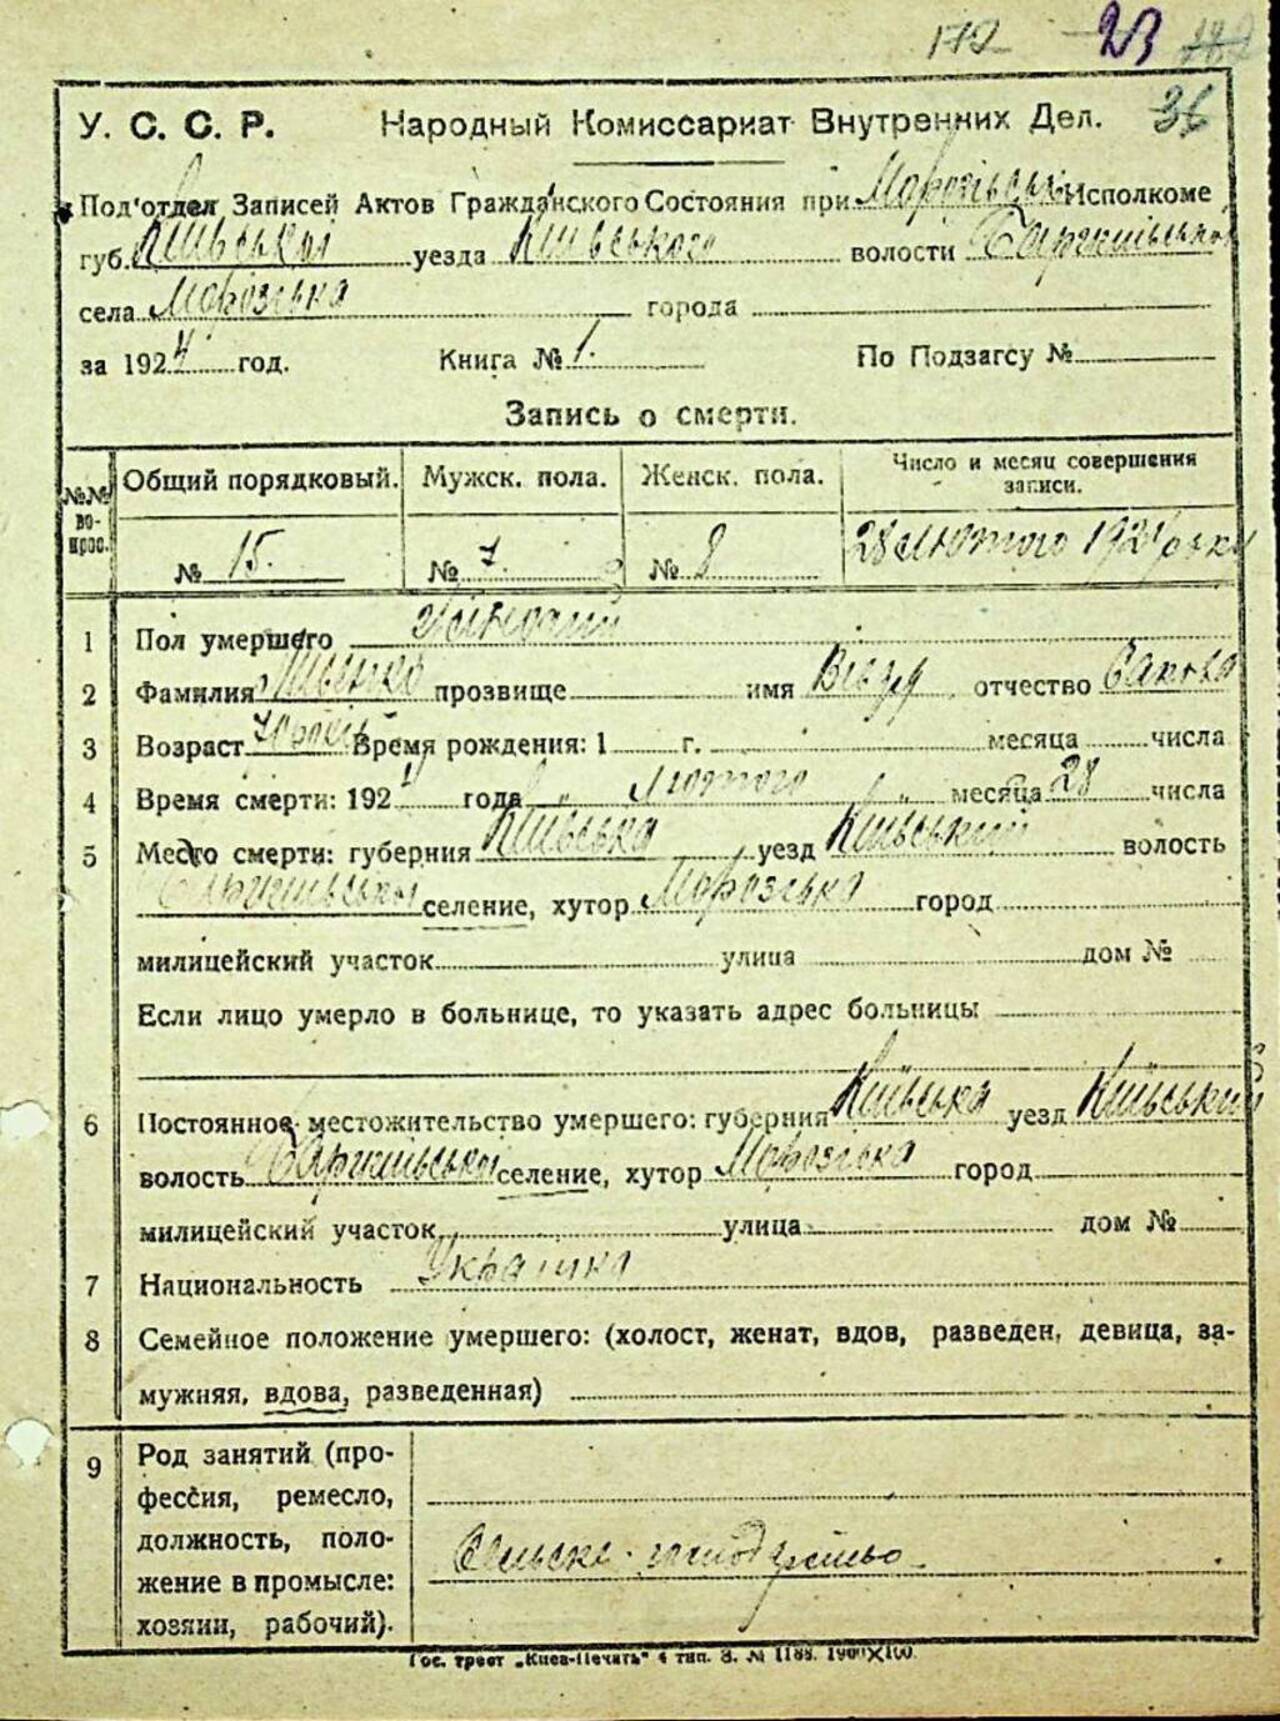 172 23
36
У. С. С. Р. Народный Комиссариат Внутренних Дел.
Под'отдел Записей Актов Гражданского Состояния при Исполкоме
губ. Київської уезда Київського волости
села Морозівка города
за 1924 год. Книга № 1. По Подзагсу №
Запись о смерти.
№№ вопрос. Общий порядковый. Мужск. пола. Женск. пола. Число и месяц совершения записи.
№ 15. № 7. № 8 28 лютого 1924 року
1 Пол умершего Жіночий
2 Фамилия прозвище имя отчество
3 Возраст Время рождения: 1 г. месяца числа
4 Время смерти: 1924 года " лютого " месяца 28 числа
5 Место смерти: губерния Київська уезд Київський волость
селение, хутор Морозівка город
милицейский участок улица дом №
Если лицо умерло в больнице, то указать адрес больницы
6 Постоянное местожительство умершего: губерния Київська уезд Київський
волость селение, хутор Морозівка город
милицейский участок улица дом №
7 Национальность Українка
8 Семейное положение умершего: (холост, женат, вдов, разведен, девица, за-
мужняя, вдова, разведенная)
9 Род занятий (про-
фессия, ремесло,
должность, поло-
жение в промысле:
хозяин, рабочий).
Сільске-господарство
Гос. трест „Киев-Печать" 4 тип. З. № 1188. 1900×100.